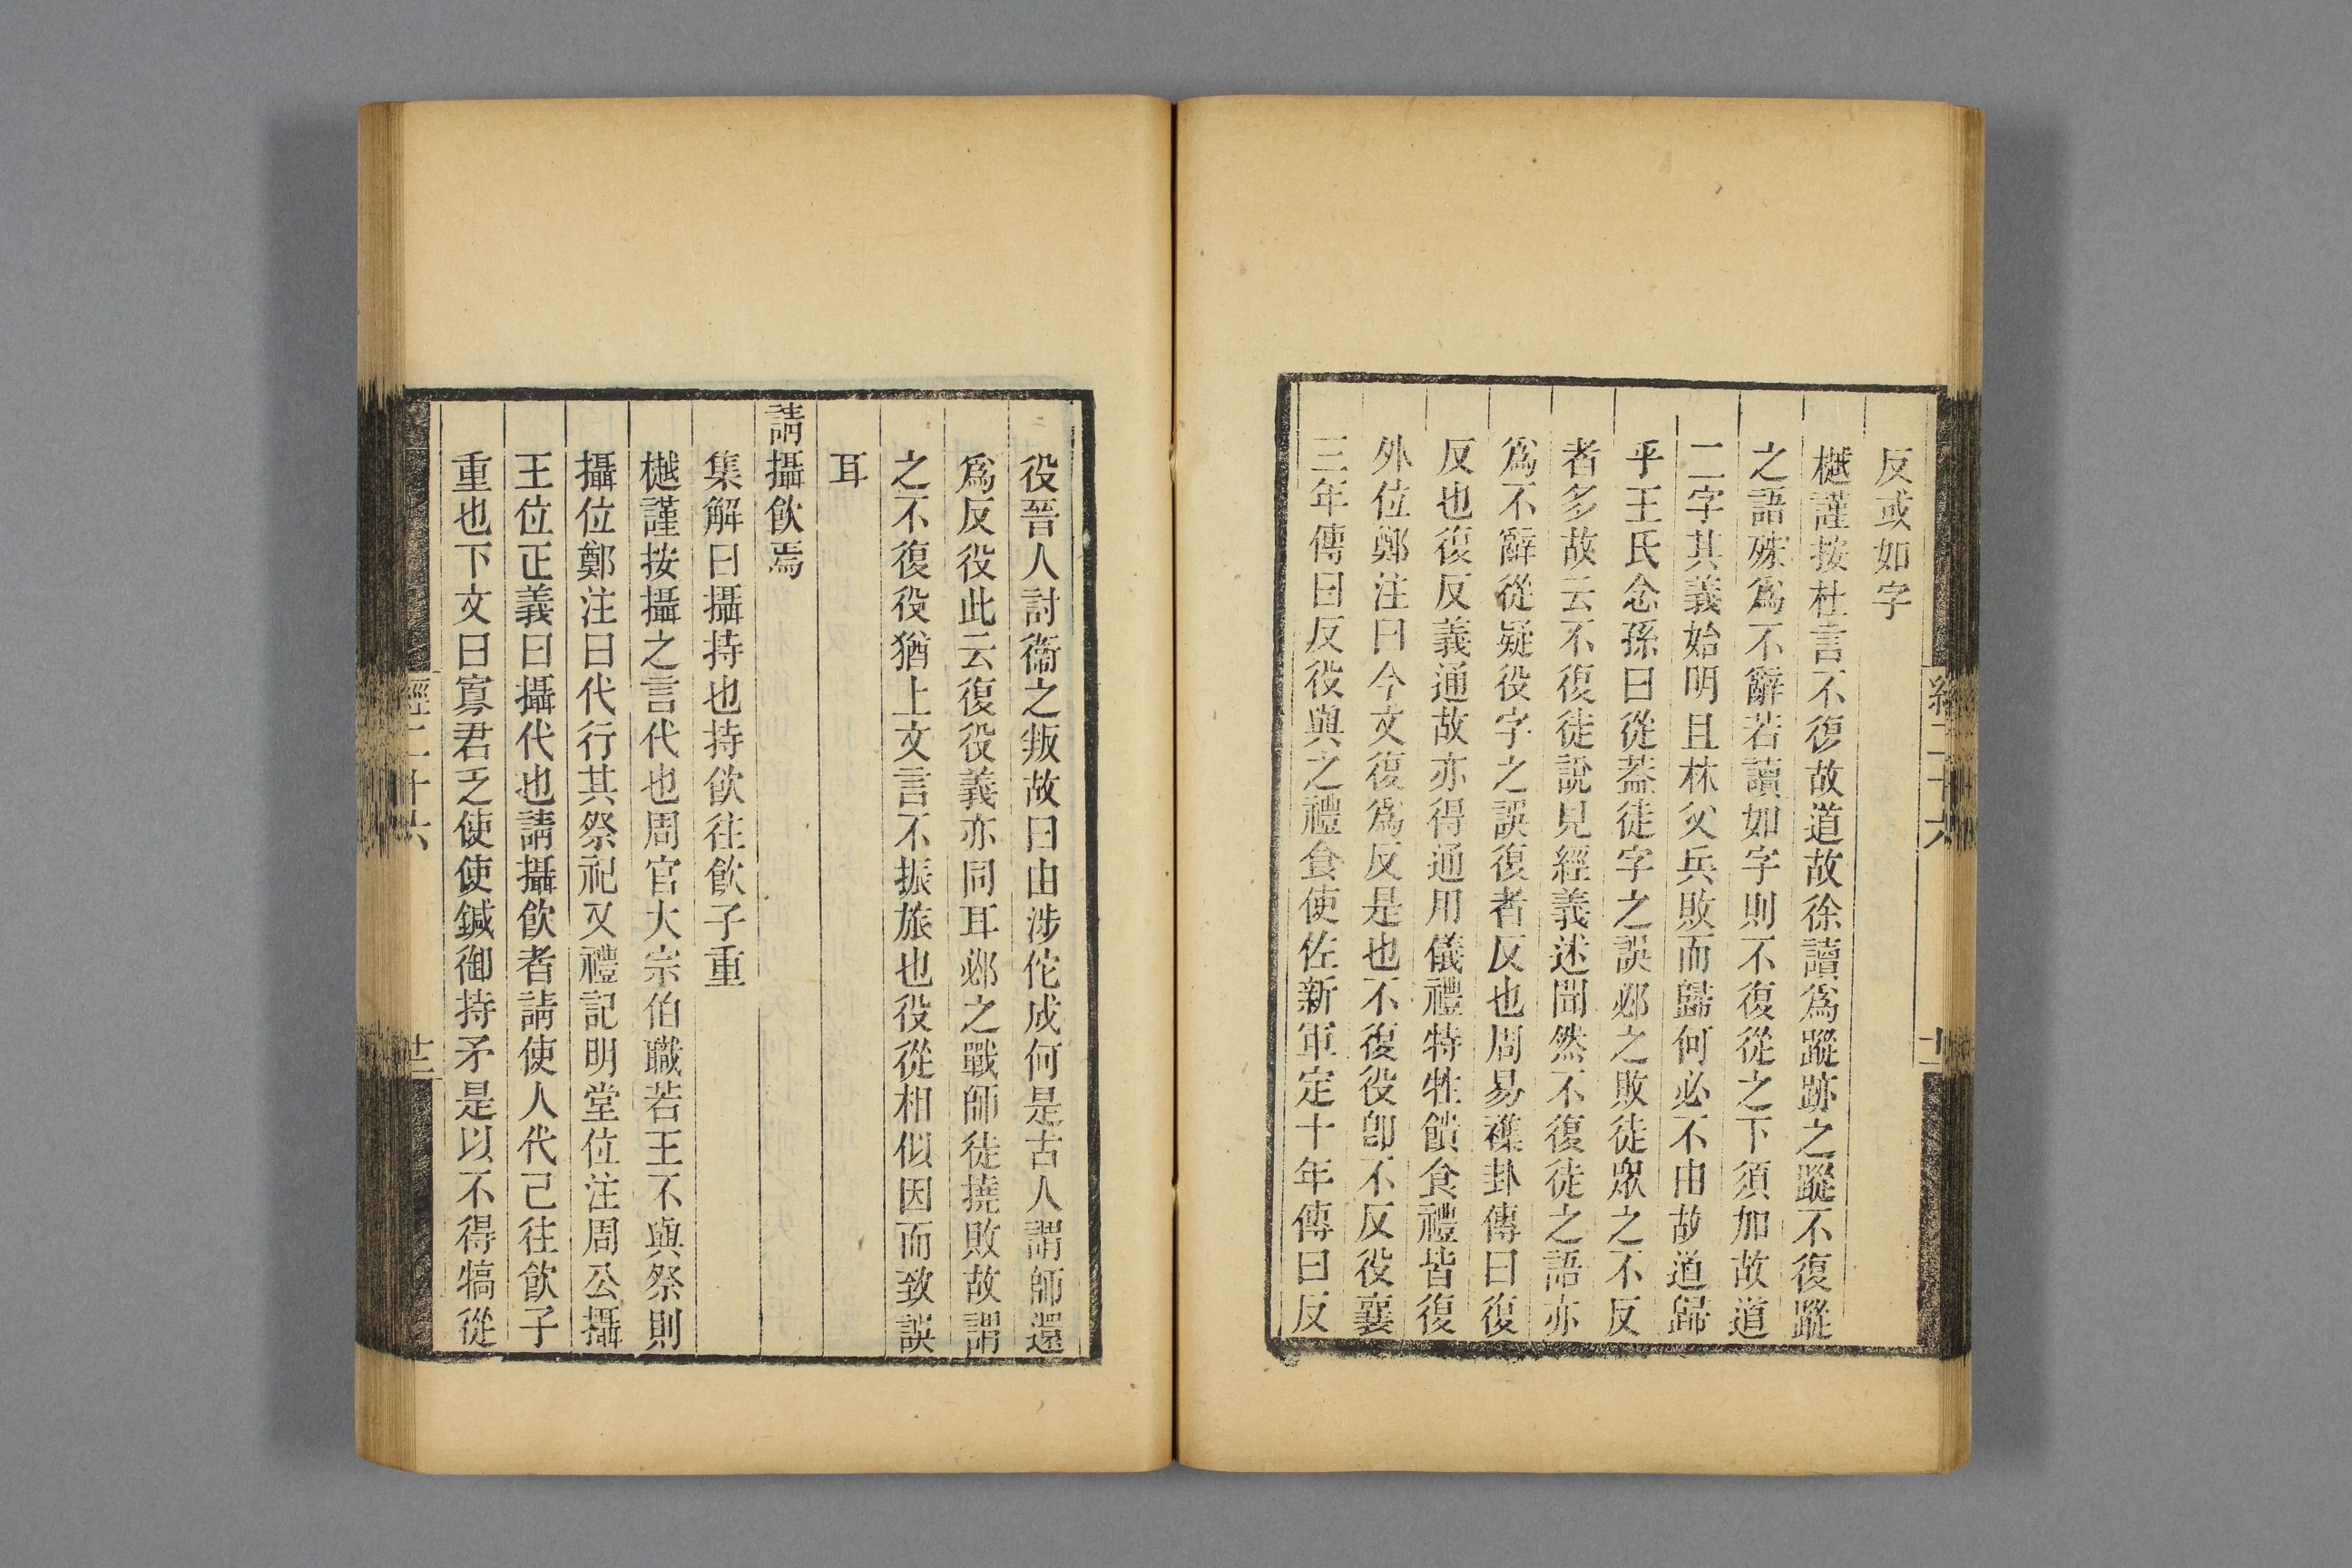 反或如字
樾謹按杜言不復故道故徐讀爲蹤跡之蹤不復蹤
之語殊爲不辭若讀如字則不復從之下須加故道
二字其義始明且林父兵敗而歸何必不由故道歸
乎王氏念孫曰從葢徒字之誤邲之敗徒眾之不反
者多故云不復徒說見經義述聞然不復徒之語亦
爲不辭從疑役字之誤復者反也周易襍卦傳曰復
反也復反義通故亦得通用儀禮特牲饋食禮皆復
外位鄭注曰今文復爲反是也不復役卽不反役襄
三年傳曰反役與之禮食使佐新軍定十年傳曰反
役晉人討衞之叛故曰由涉佗成何是古人謂師還
爲反役此云復役義亦同耳邲之戰師徒撓敗故謂
之不復役猶上文言不振旅也役從相似因而致誤
耳
請攝飲焉
集解曰攝持也持飲往飲子重
樾謹按攝之言代也周官大宗伯職若王不與祭則
攝位鄭注曰代行其祭祀又禮記明堂位注周公攝
王位正義曰攝代也請攝飲者請使人代己往飲子
重也下文曰寡君乏使使鍼御持矛是以不得犒從
經二十六